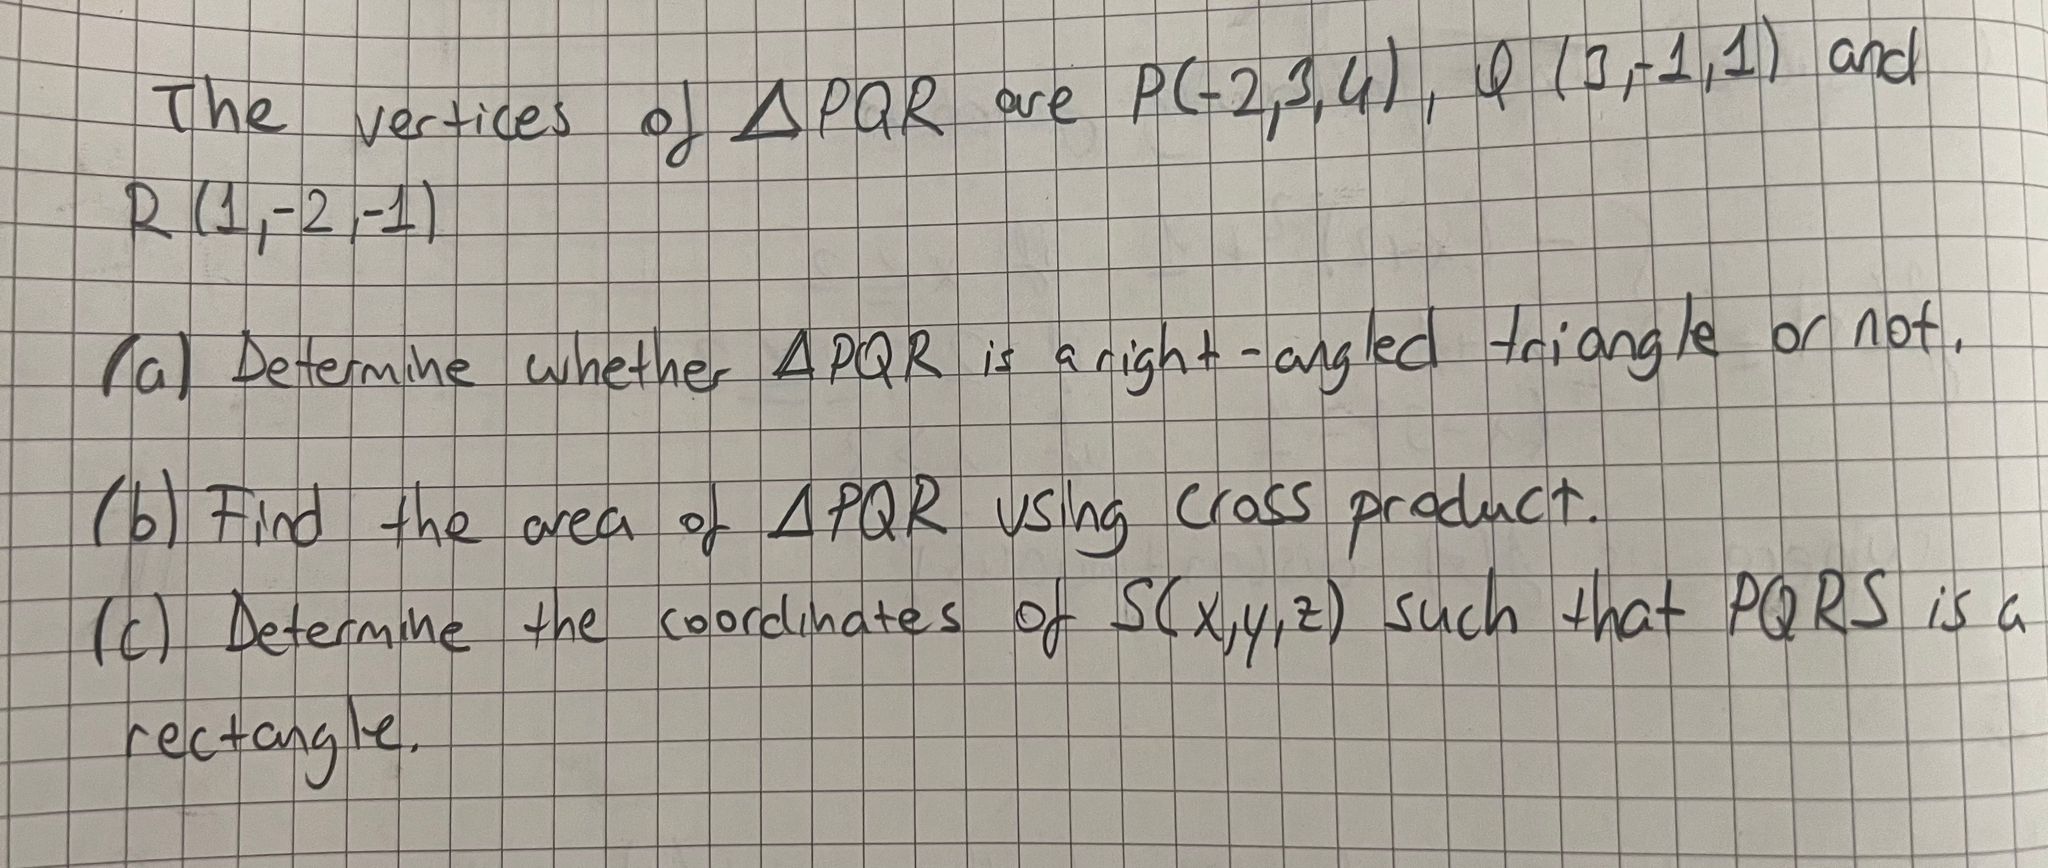 The vertices of ΔPQR are P(-2,3,4), Q (3,-1,1) and
R (1,-2,-1)
(a) Determine whether ΔPQR is a right-angled triangle or not.
(b) Find the area of ΔPQR using cross product.
(c) Determine the coordinates of S(x,y,z) such that PQRS is a
rectangle.